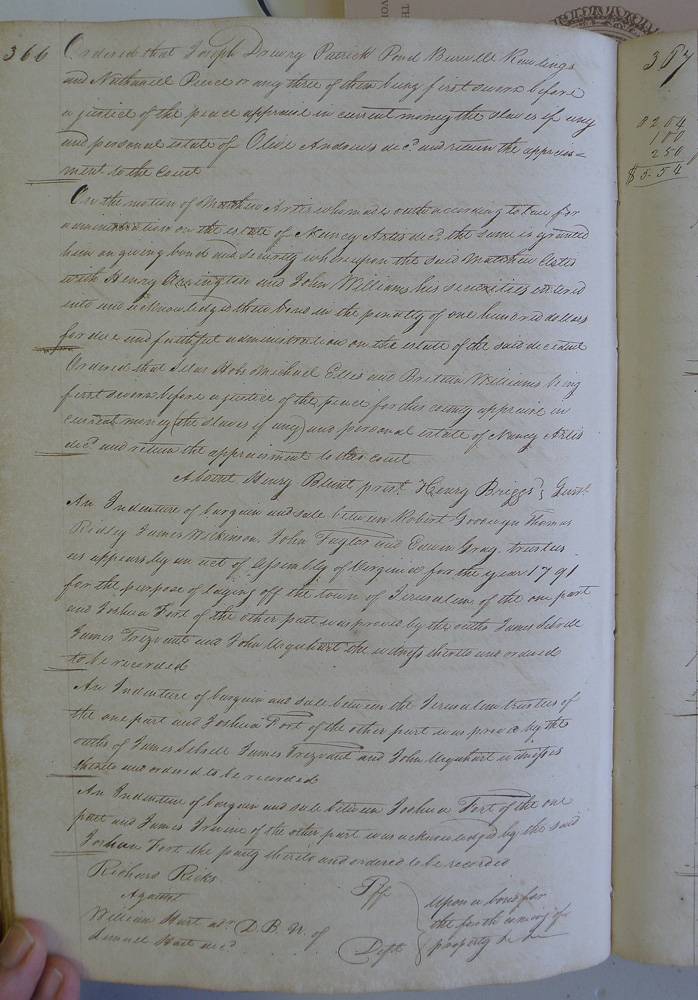 366
Ordered that Joseph Drewry Patrick Pond Burwell Rawlings
and Nathaniel Pierce or any three of them being first sworn before
a justice of the peace appraise in current money the slaves if any
and personal estate of Olive Andrews dec.d and return the appraise=
ment to the court
On the motion of Matthew Artis who made oath according to law for
administration on the estate of Nancy Artis dec.d the same is granted
him on giving bond and security whereupon the said Matthew Artis
with Henry Arrington and John Williams his securities entered
into and acknowledged their bond in the penalty of one hundred dollars
for due and faithful administration on the estate of the said decedent
Ordered that Silas Hobs Michael Ellis and Britain Williams being
first sworn before a justice of the peace for this county appraise in
current money (the slaves if any) and personal estate of Nancy Artis
dec.d and return the appraisment to this court
Absent Henry Blunt pres.t Henry Briggs } Gent.
An Indenture of bargain and sale between Robert Goodwyn Thomas
Ridley James Wilkinson John Taylor and Edwin Gray trustees
as appears by an act of Assembly of Virginia for the year 1791
for the purpose of laying off the town of Jerusalem of the one part
and Joshua Fort of the other part was proved by the oaths James Sebrell
James Trezvant and John Urquhart the witness thereto and ordered
to be recorded
An Indenture of bargain and sale between the Jerusalem trustees of
the one part and Joshua Fort of the other part was proved by the
oaths of James Sebrell James Trezvant and John Urquhart witnesses
thereto and ordered to be recorded
An Indenture of bargain and sale between Joshua Fort of the one
part and James of the other part was acknowledged by the said
Joshua Fort the party thereto and ordered to be recorded
Richard Ricks Plf
Against
William Hart ad.r D.B.N. of
Samuel Hart dec.d Deft
Upon a bond for
the forth coming of
property &c
367
204
100
250
$5.54